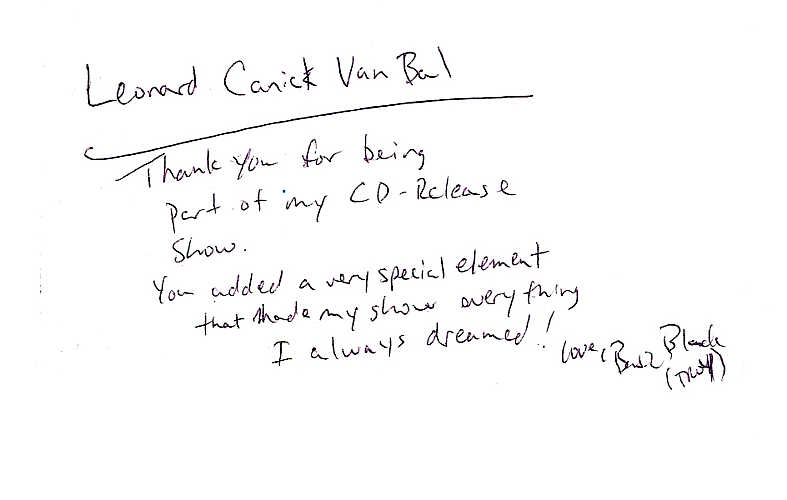 Leonard Canick Van Bal
Thank you for being
part of my CD-Release
Show.
You added a very special element
that made my show everything
I always dreamed!
Love, Black
(TROY)